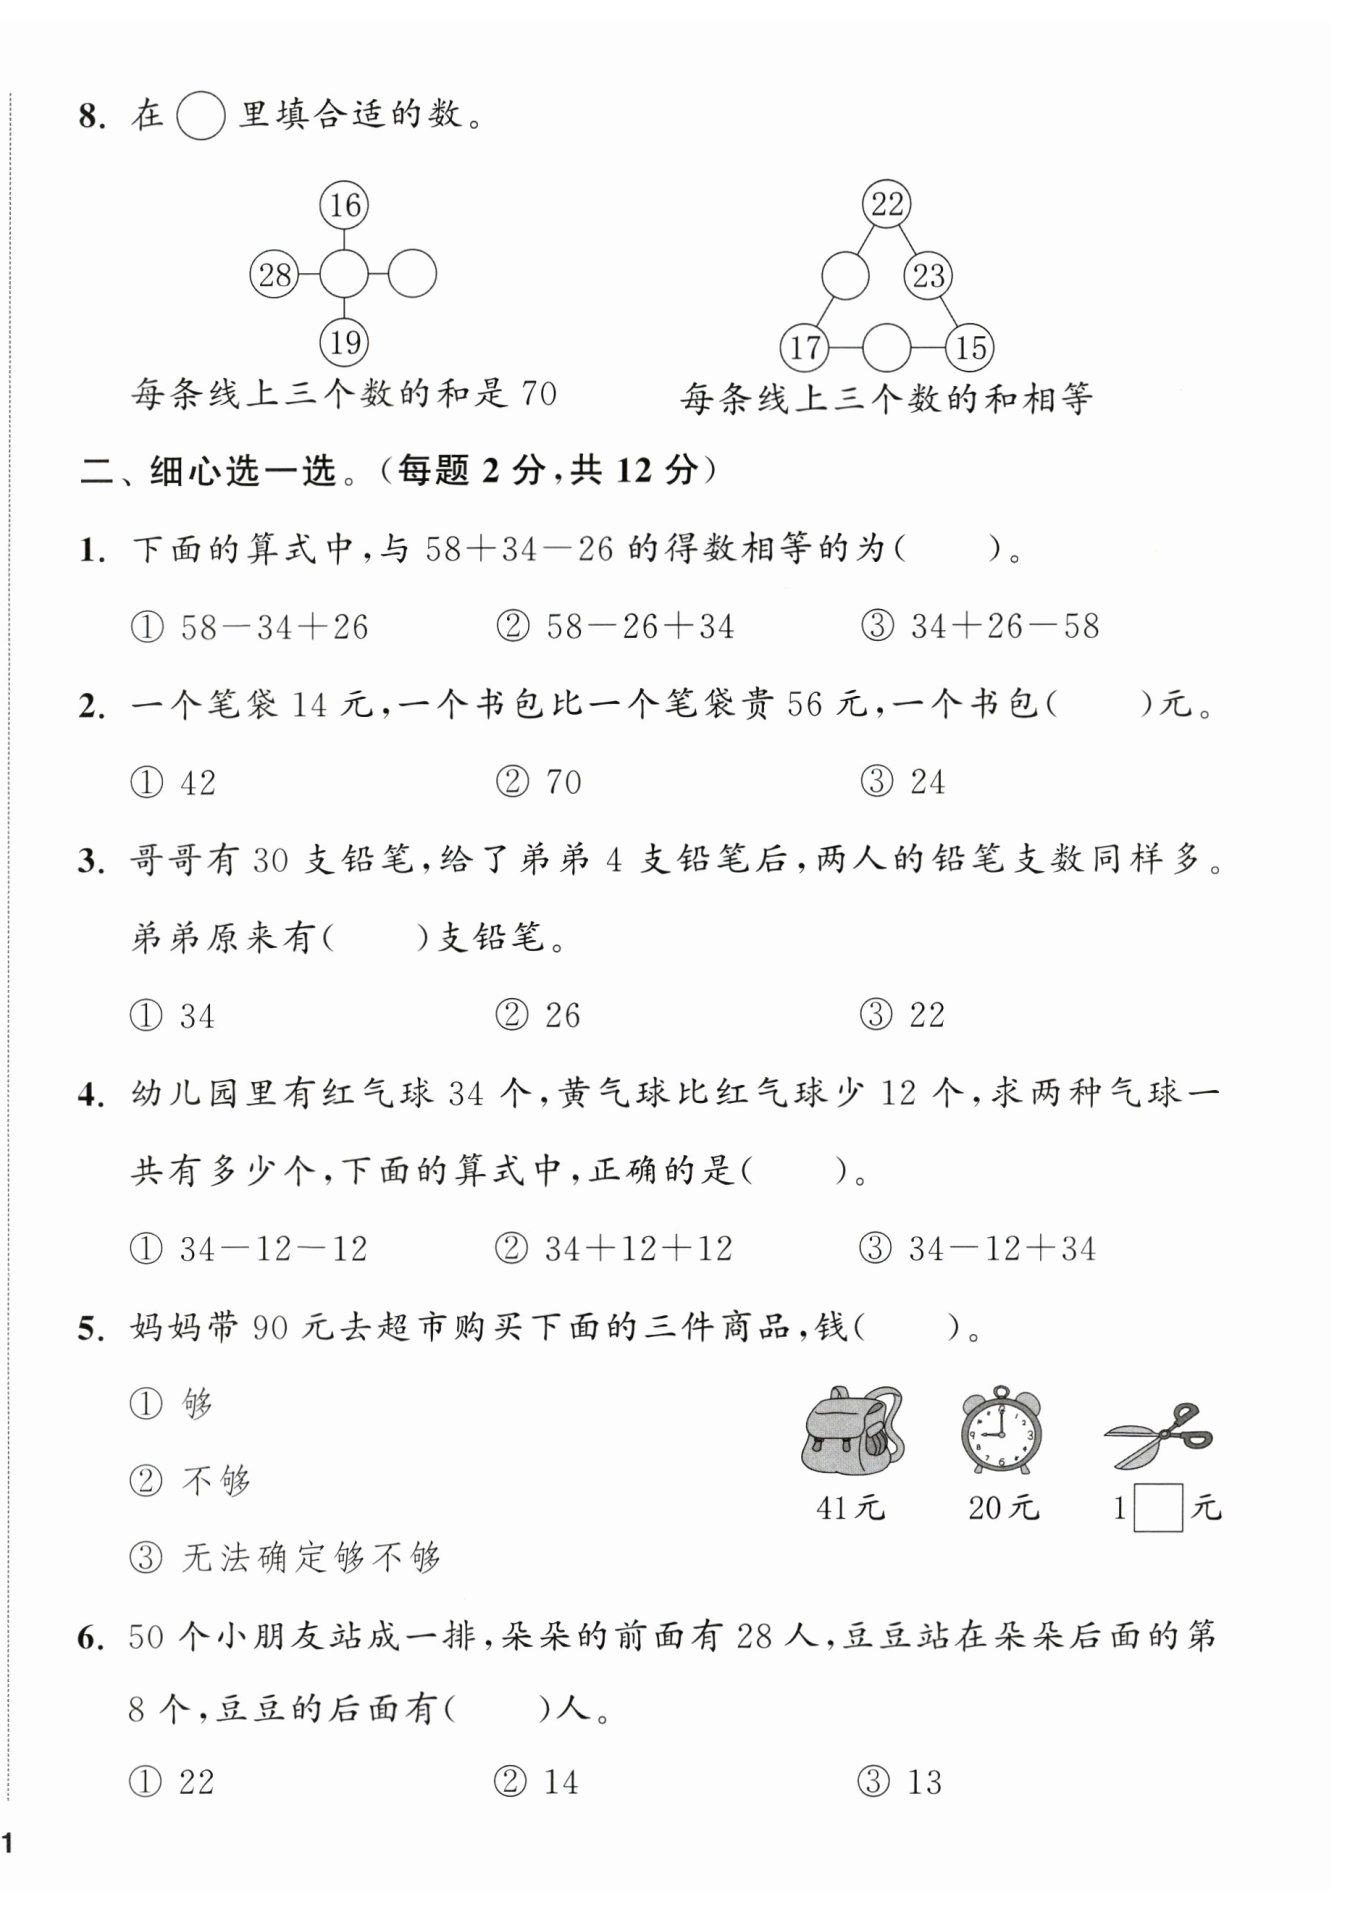 8. 在○里填合适的数。
16 22
28 23
19 17 15
每条线上三个数的和是 70 每条线上三个数的和相等
二、细心选一选。(每题 2 分,共 12 分)
1. 下面的算式中,与 58+34-26 的得数相等的为( )。
① 58-34+26 ② 58-26+34 ③ 34+26-58
2. 一个笔袋 14 元,一个书包比一个笔袋贵 56 元,一个书包( )元。
① 42 ② 70 ③ 24
3. 哥哥有 30 支铅笔,给了弟弟 4 支铅笔后,两人的铅笔支数同样多。
弟弟原来有( )支铅笔。
① 34 ② 26 ③ 22
4. 幼儿园里有红气球 34 个,黄气球比红气球少 12 个,求两种气球一
共有多少个,下面的算式中,正确的是( )。
① 34-12-12 ② 34+12+12 ③ 34-12+34
5. 妈妈带 90 元去超市购买下面的三件商品,钱( )。
① 够
② 不够
41元 20元 1□元
③ 无法确定够不够
6. 50 个小朋友站成一排,朵朵的前面有 28 人,豆豆站在朵朵后面的第
8 个,豆豆的后面有( )人。
① 22 ② 14 ③ 13
1